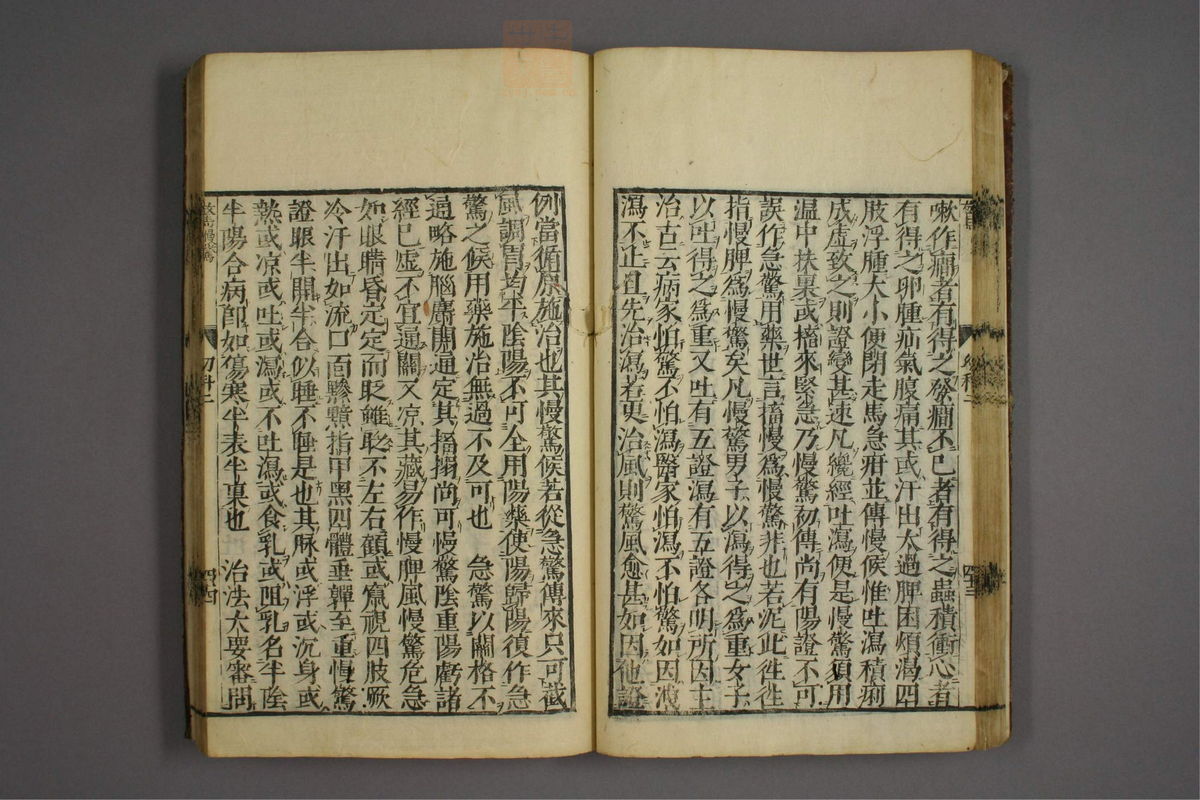 嗽作癎者有得之發癎不已者有得之蟲積衝心者
有得之卵腫疝氣腹痛其或汗出太過脾困煩渴四
肢浮腫大小便閉走馬急疳並傳慢候惟吐瀉積痢
成虛致之則證變甚速凡纔經吐瀉便是慢驚須用
温中扶裏或搐來緊急乃慢驚初傳尚有陽證不可
誤作急驚用藥世言搐慢爲慢驚非也若泥此徃徃
指慢脾爲慢驚矣凡慢驚男子以瀉得之爲重女子
以吐得之爲重又吐有五證瀉有五證各明所因主
治古云病家怕驚不怕瀉醫家怕瀉不怕驚如因瀉
瀉不止且先治瀉若更治風則驚風愈甚如因他證
例當循原施治也其慢驚候若從急驚傳來只可截
風調胃均平陰陽不可全用陽藥使陽歸陽復作急
驚之候用藥施治無過不及可也 急驚以關格不
通略施腦麝開通定其搐搦尚可慢驚陰重陽虧諸
經已虛不宜通關又凉其藏易作慢脾風慢驚危急
如眼睛昏定定而眨雖眨不左右顧或竄視四肢厥
冷汗出如流口面黲黯指甲黑四體垂嚲至重慢驚
證眼半開半合似睡不睡是也其脉或浮或沉身或
熱或凉或吐或瀉或不吐瀉或食乳或阻乳名半陰
半陽合病卽如傷寒半表半裏也 治法大要審問
幼科二
四四